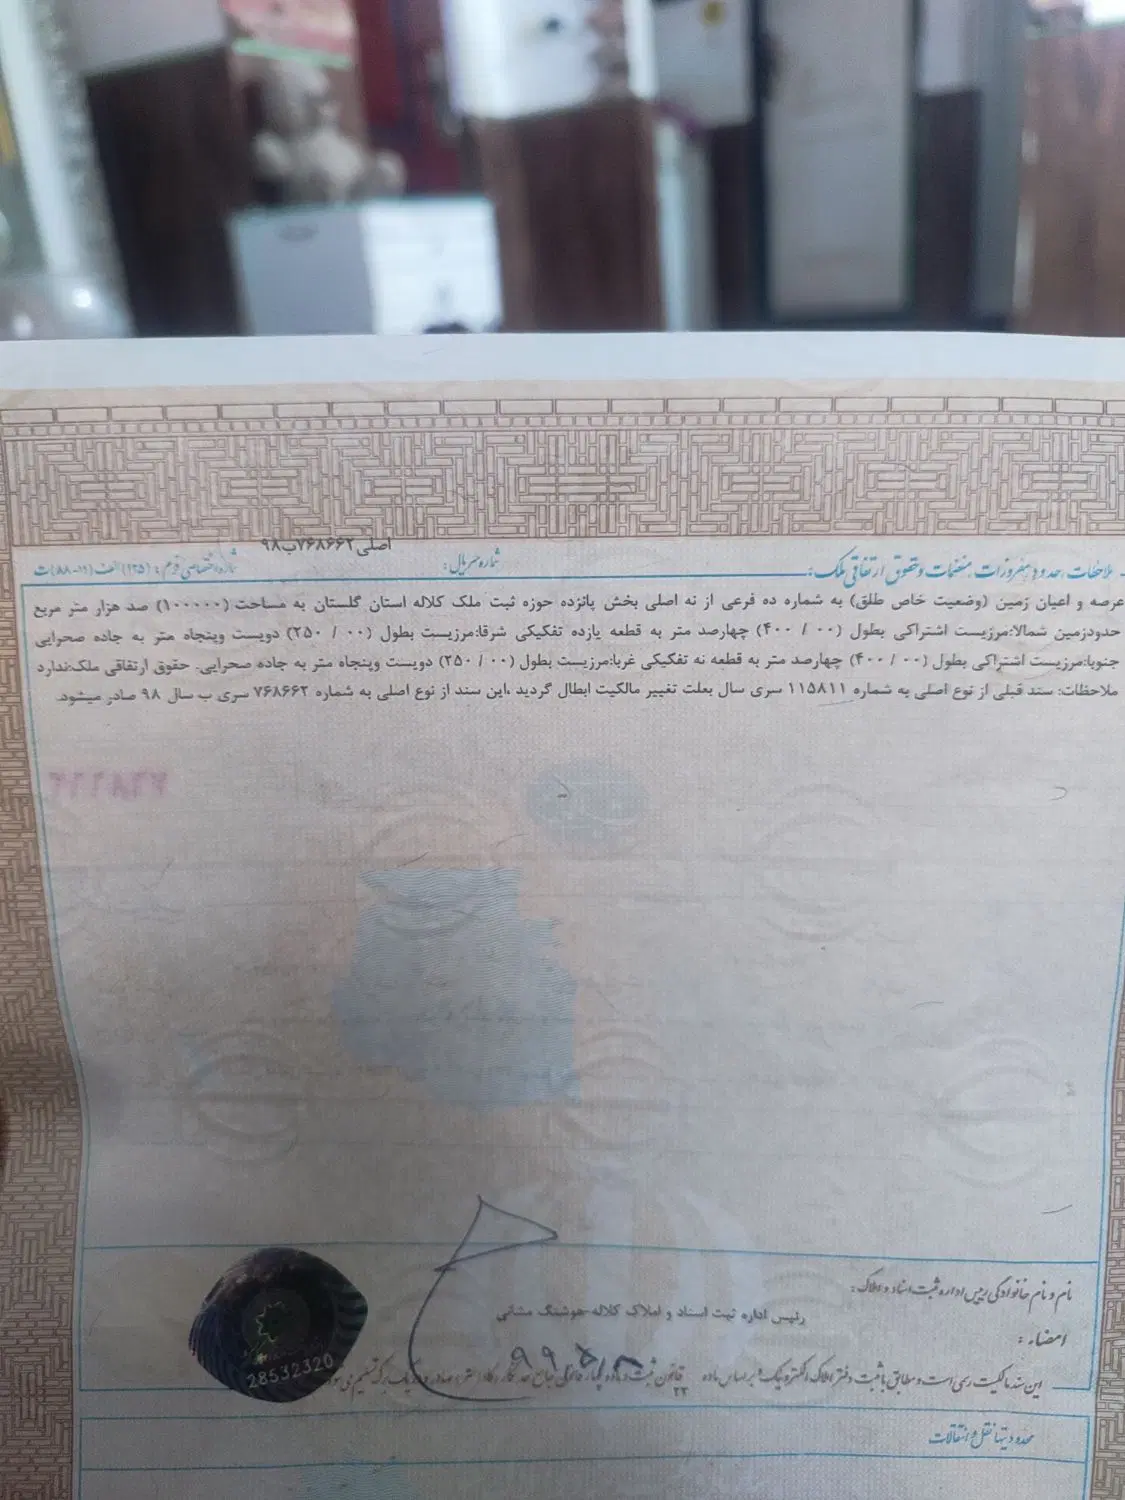 اصلی ۷۶۸۶۶۲ب۹۸
ملاحظات، حدود، مفروزات، منضمات و حقوق ارتفاقی ملک: شماره سریال: شماره اختصاصی فرم: (۱۲۵) الف (۱۱-۸۸) ت
عرصه و اعیان زمین (وضعیت خاص طلق) به شماره ده فرعی از نه اصلی بخش پانزده حوزه ثبت ملک کلاله استان گلستان به مساحت (۱۰۰۰۰۰) صد هزار متر مربع
حدودزمین شمالا:مرزیست اشتراکی بطول (۰۰ / ۴۰۰) چهارصد متر به قطعه یازده تفکیکی شرقا:مرزیست بطول (۰۰ / ۲۵۰) دویست وپنجاه متر به جاده صحرایی
جنوبا:مرزیست اشتراکی بطول (۰۰ / ۴۰۰) چهارصد متر به قطعه نه تفکیکی غربا:مرزیست بطول (۰۰ / ۲۵۰) دویست وپنجاه متر به جاده صحرایی. حقوق ارتفاقی ملک:ندارد
ملاحظات: سند قبلی از نوع اصلی به شماره ۱۱۵۸۱۱ سری سال بعلت تغییر مالکیت ابطال گردید ،این سند از نوع اصلی به شماره ۷۶۸۶۶۲ سری ب سال ۹۸ صادر میشود.
نام و نام خانوادگی رییس اداره ثبت اسناد و املاک:
رئیس اداره ثبت اسناد و املاک کلاله-هوشنگ مشانی
امضاء:
28532320
این سند مالکیت رسمی است و مطابق با ثبت دفتر املاک الکترونیک و بر اساس ماده ۲۲ قانون ثبت
محدودیتها نقل و انتقالات